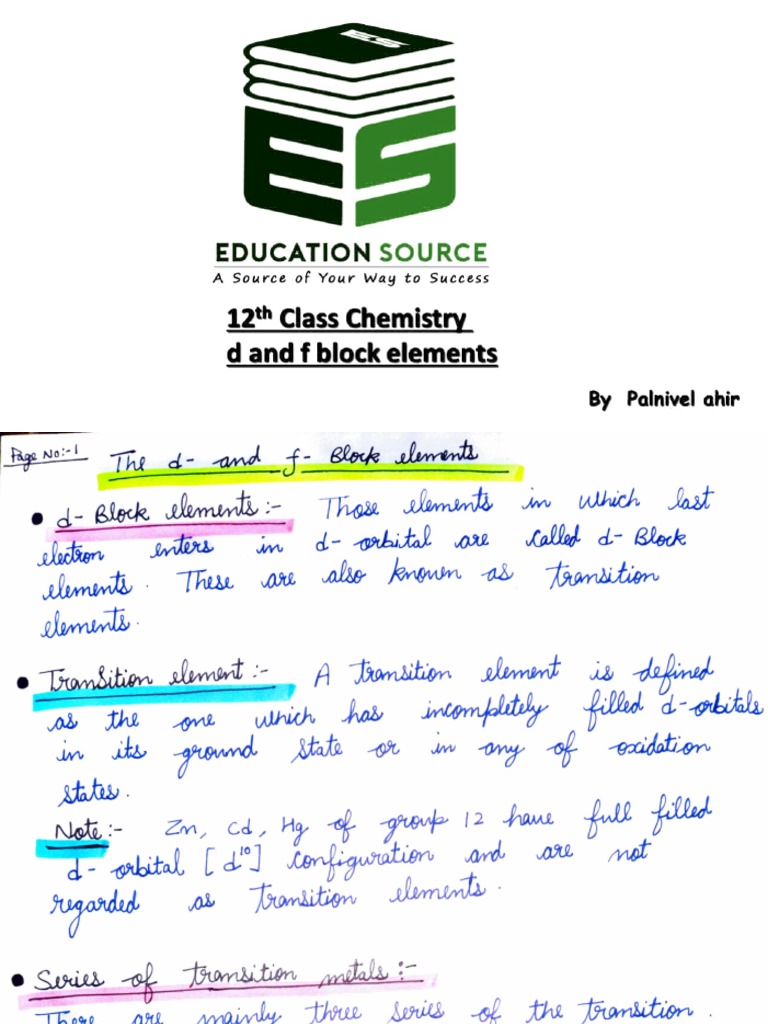 ES
ES
EDUCATION SOURCE
A Source of Your Way to Success
12th Class Chemistry
d and f block elements
By Palnivel ahir
Page No:-1
The d- and f- Block elements
• d- Block elements:- Those elements in which last
electron enters in d-orbital are called d-Block
elements. These are also known as transition
elements.
• Transition element:- A transition element is defined
as the one which has incompletely filled d-orbitals
in its ground state or in any of oxidation
states.
Note:- Zn, Cd, Hg of group 12 have full filled
d- orbital [d¹⁰] configuration and are not
regarded as transition elements.
• Series of transition metals:-
There are mainly three series of the transition